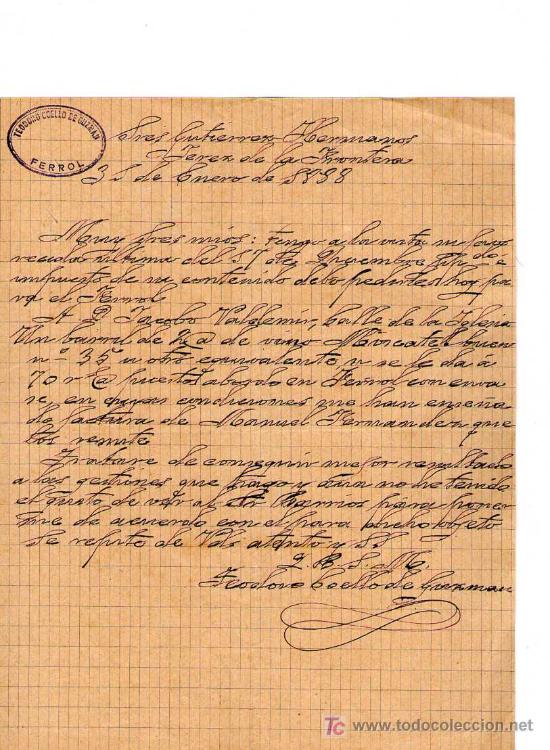 TEODORO COELLO DE GUZMAN
FERROL
Sres Gutierrez Hermanos
Jerez de la Frontera
31 de Enero de 1898
Muy Sres mios: tengo a la vista su favo
recida ultima del 17 de Diciembre
impuesto de su contenido debo pedirles hoy pa
ra el Ferrol
A D. Jacobo Valdemir, calle de la Iglesia
Un barril de 2 @ de vino Moscatel buen
nº 35 u otro equivalente y se le da á
70 r @ puesto abordo en Ferrol con enva
se, en cuyas condiciones me han enseña
do factura de Manuel Fernandez que
los remite
Tratare de conseguir mejor resultado
a las gestiones que hago y aun no he tenido
el gusto de ver al Sr Berrios para poner
me de acuerdo con el para dicho objeto
Se repite de Vds atento y SS
Q. B. S. M.
Teodoro Coello de Guzman
TC www.todocoleccion.net